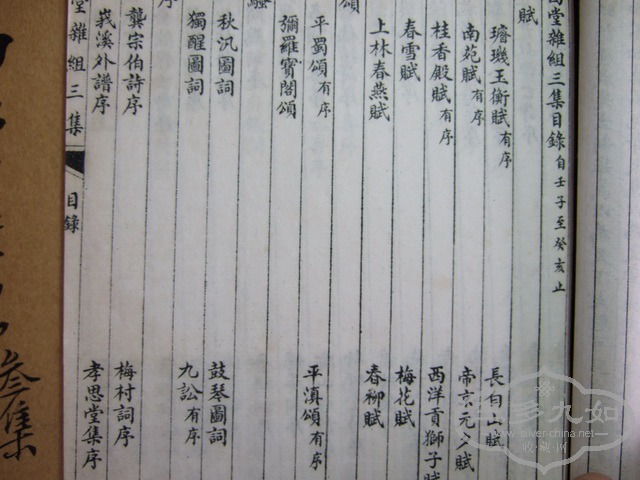 堂雜組三集目錄自壬子至癸亥止
賦
璿璣玉衡賦有序 長白山賦
南苑賦有序 帝京元夕賦
桂香殿賦有序 西洋貢獅子賦
春雪賦 梅花賦
上林春燕賦 春柳賦
頌
平蜀頌有序 平滇頌有序
彌羅寶閣頌
騷
秋汎圖詞 鼓琴圖詞
獨醒圖詞 九訟有序
序
龔宗伯詩序 梅村詞序
峩溪外譜序 孝思堂集序
堂雜組三集 目錄
叄集
多九如
www.silver-china.net
收藏网